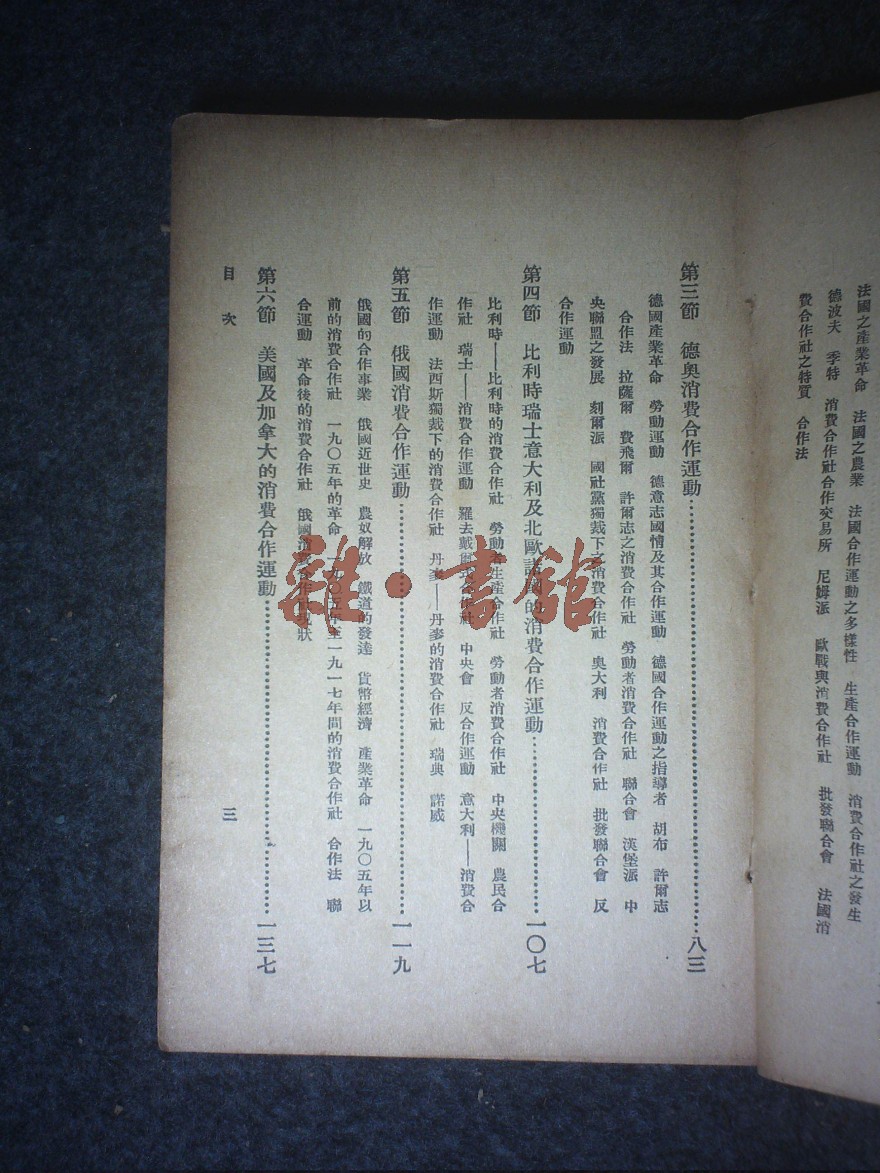 法國之產業革命　法國之農業　法國合作運動之多樣性　生產合作運動　消費合作社之發生
德波夫　季特　消費合作社合作交易所　尼姆派　歐戰與消費合作社　批發聯合會　法國消
費合作社之特質　合作法
第三節　德奧消費合作運動……………………………八三
德國產業革命　勞動運動　德意志國情及其合作運動　德國合作運動之指導者　胡布　許爾志
合作法　拉薩爾　費飛爾　許爾志之消費合作社　勞動者消費合作社　聯合會　漢堡派　中
央聯盟之發展　刻爾派　國社黨獨裁下之消費合作社　奧大利　消費合作社　批發聯合會　反
合作運動
第四節　比利時瑞士意大利及北歐諸國的消費合作運動……………一〇七
比利時——比利時的消費合作社　勞動者生產合作社　勞動者消費合作社　中央機關　農民合
作社　瑞士——消費合作運動　羅去戴爾式合作社　中央會　反合作運動　意大利——消費合
作運動　法西斯獨裁下的消費合作社　丹麥——丹麥的消費合作社　瑞典　諾威
第五節　俄國消費合作運動……………………………一一九
俄國的合作事業　俄國近世史　農奴解放　鐵道的發達　貨幣經濟　產業革命　一九〇五年以
前的消費合作社　一九〇五年的革命　一九〇五年至一九一七年間的消費合作社　合作法　聯
合運動　革命後的消費合作社　俄國消費合作社現狀
第六節　美國及加拿大的消費合作運動……………………一三七
目次　三
雜·書館